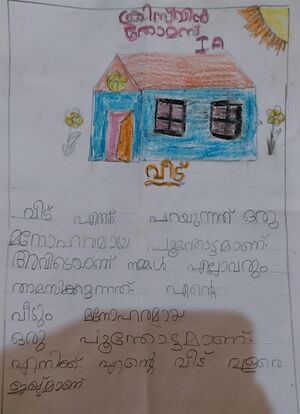 ക്രിസ്‌വിൻ
തോമസ്
I A
വീട്
വീട് എന്ന് പറയുന്നത് ഒരു
മനോഹരമായ പൂന്തോട്ടമാണ്.
അവിടെയാണ് നമ്മൾ എല്ലാവരും
താമസിക്കുന്നത്. എന്റെ
വീടും മനോഹരമായ
ഒരു പൂന്തോട്ടമാണ്.
എനിക്ക് എന്റെ വീട് വളരെ
ഇഷ്ടമാണ്